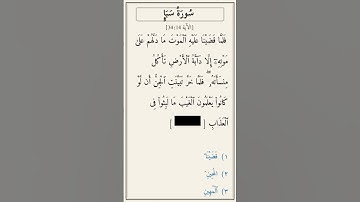 سُورَةُ سَبَإٍ
[الآية 14:34]
فَلَمَّا قَضَيْنَا عَلَيْهِ ٱلْمَوْتَ مَا دَلَّهُمْ عَلَىٰ
مَوْتِهِۦٓ إِلَّا دَآبَّةُ ٱلْأَرْضِ تَأْكُلُ
مِنسَأَتَهُۥ ۖ فَلَمَّا خَرَّ تَبَيَّنَتِ ٱلْجِنُّ أَن لَّوْ
كَانُوا۟ يَعْلَمُونَ ٱلْغَيْبَ مَا لَبِثُوا۟ فِى
ٱلْعَذَابِ [ ]
١) قَضَيْنَا
٢) الْجِنِّ
٣) ٱلْمُهِينِ